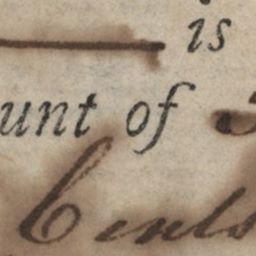 is
unt of
Cents